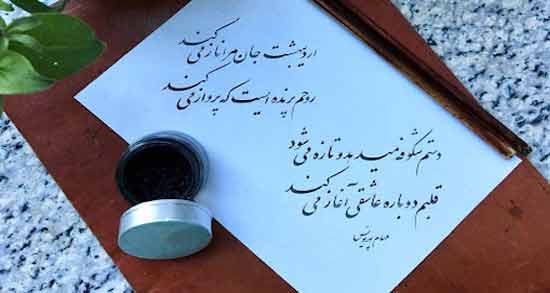 اردیبهشت جان مرا ناز می کند
روحم پرنده ایست که پرواز می کند
دستم شکوفه میدهد و تازه می شود
قلبم دوباره عاشقی آغاز می کند